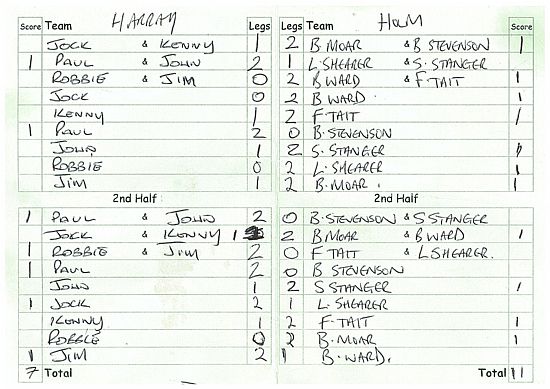 Score Team HARRAY Legs Legs Team HOLM Score
JOCK & KENNY 1 2 B MOAR & B STEVENSON 1
1 PAUL & JOHN 2 1 L. SHEARER & S. STANGER
ROBBIE & JIM 0 2 B WARD & F TAIT 1
JOCK 0 2 B WARD. 1
KENNY 1 2 F TAIT 1
1 PAUL 2 0 B. STEVENSON
JOHN 1 2 S. STANGER 1
ROBBIE 0 2 L. SHEARER 1
JIM 1 2 B. MOAR. 1
2nd Half 2nd Half
1 PAUL & JOHN 2 0 B. STEVENSON & S STANGER
JOCK & KENNY 1 2 B MOAR & B WARD 1
1 ROBBIE & JIM 2 0 F TAIT & L SHEARER.
1 PAUL 2 0 B STEVENSON
JOHN 1 2 S STANGER 1
1 JOCK 2 1 L. SHEARER
KENNY 1 2 F. TAIT 1
ROBBIE 0 2 B. MOAR 1
1 JIM 2 1 B. WARD.
7 Total Total 11